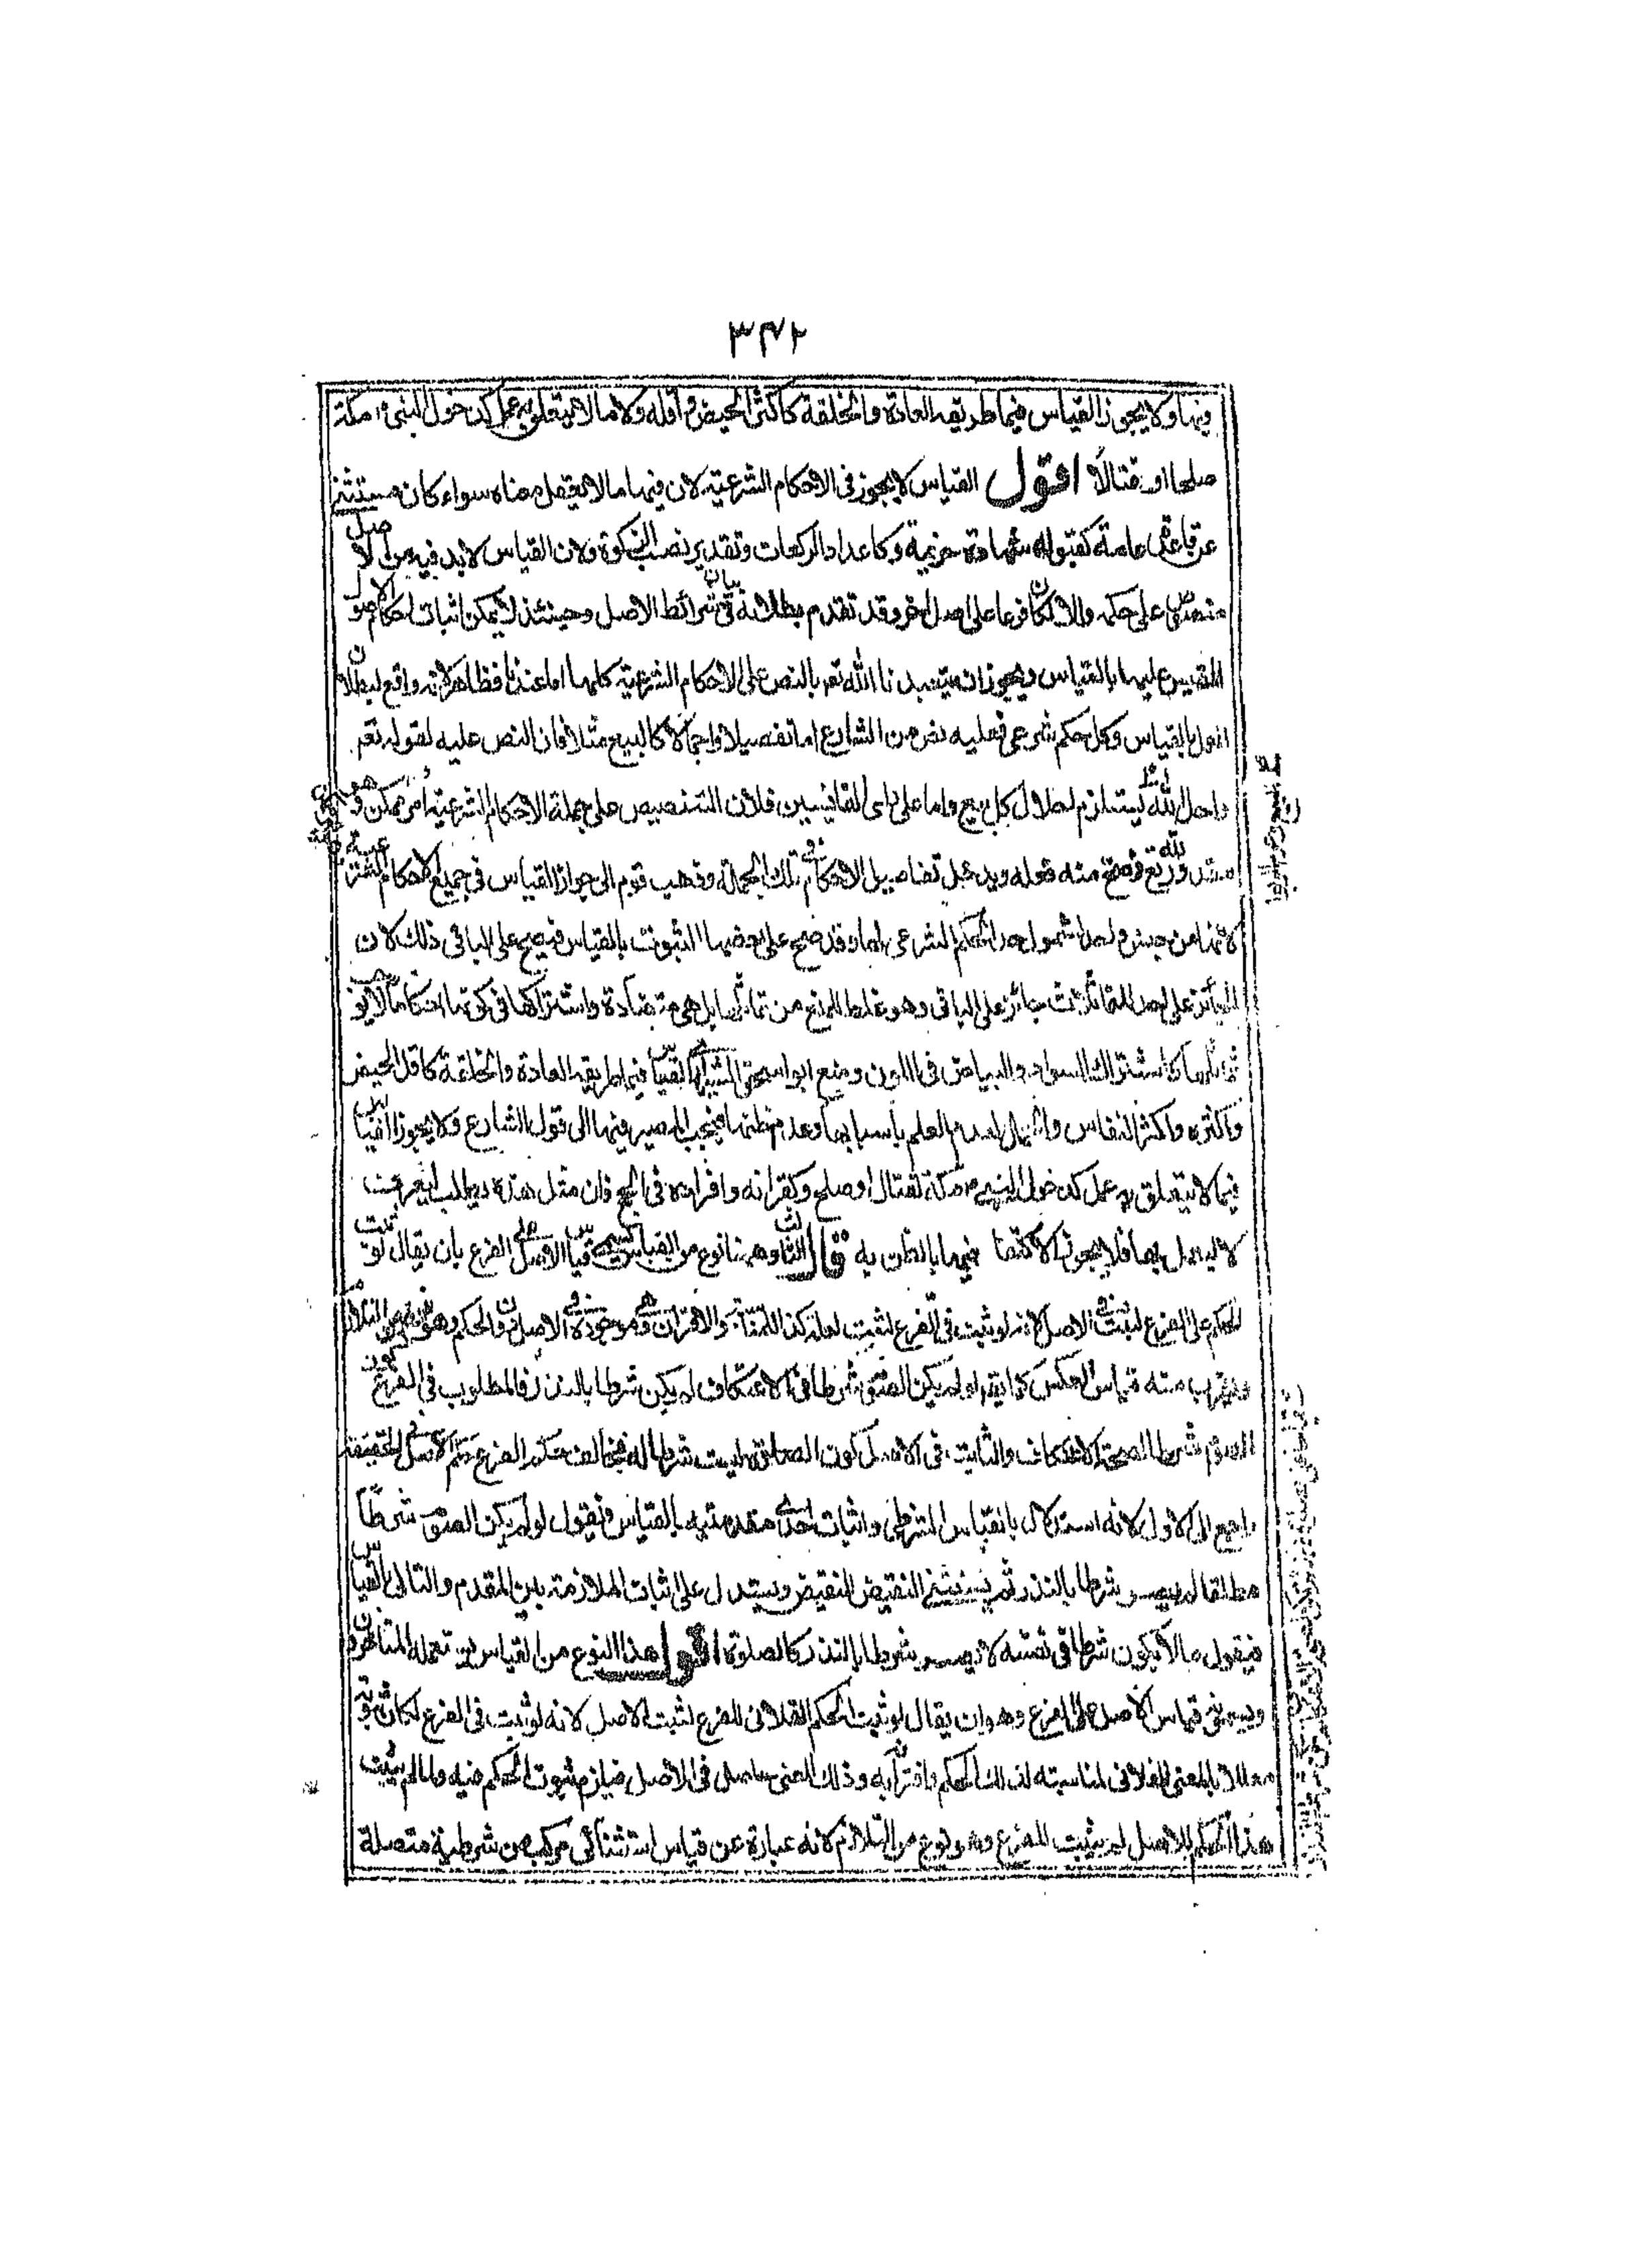 ٣٤٢
فيها ولا يجوز القياس فيما طريقه العادة والخلقة كأكثر الحيض واقله ولا ما لا يتعلق به عمل كدخول النبي مكة
صلحا او قتالًا اقول القياس لا يجوز فى الاحكام الشرعية لان فيها ما لا يعقل معناه سواء كان مستثنى
عن قاعدة عامة كقبول شهادة خزيمة او كاعداد الركعات وتقدير نصب الزكوة ولان القياس لا بد فيه من اصل
منصوص على حكمه والا لكان فرعا على اصل اخر وقد تقدم بطلانه فى بيان شرائط الاصل وحينئذ لا يمكن اثبات احكام الاصول
المقيس عليها بالقياس ويجوز ان يتعبدنا الله تعم بالنص على الاحكام الشرعية كلها اما عندنا فظاهر لانه واقع لبطلان
العمل بالقياس وكل حكم شرعي فعليه نص من الشارع اما تفصيلا او اجمالا كالبيع مثلا فان النص عليه لقوله تعم
واحل الله يستلزم لحلال كل بيع واما على راى القائسين فلان التنصيص على جملة الاحكام الشرعية أمر ممكن وهو
مقدور لله تع فصح منه فعله ويدخل تفاصيل الاحكام فى تلك الجملة وذهب قوم الى جواز القياس فى جميع الاحكام الشرعية
لانها من جنس واحد لشمول حد الحكم الشرعى لها وقد صح على بعضها الثبوت بالقياس فيصح على الباقى ذلك لان
الجائز على احد المتماثلات جائز على الباقى وهو غلط للمنع من تماثلها بل هى متضادة واشتراكها فى كونها احكاما لا يوجب
تماثلها كاشتراك السواد والبياض فى اللون ومنع ابو اسحق الشيرازى القياس فيما طريقه العادة والخلقة كاقل الحيض
واكثره واكثر النفاس والحمل لعدم العلم باسبابها وعدم ظنها فيجب المصير فيها الى قول الشارع ولا يجوز القياس
فيما لا يتعلق به عمل كدخول النبي مكة بقتال او صلح وكقرانه وافراده فى الحج فان مثل هذه يطلب ليعرف
لا ليعمل بها فلا يجوز الاكتفاء فيها بالظن به قال الثالث وهنا نوع من القياس يسمى قياس الاصل على الفرع بان يقال لو ثبت
الحكم على الفرع لثبت فى الاصل لانه لو ثبت فى الفرع لثبت لعلة كذا للمناسبة والاقتران وهى موجودة فى الاصل دون الحكم وهو نوع من التلازم
ويقرب منه قياس العكس كما يقال لو لم يكن الصوم شرطا فى الاعتكاف لم يكن شرطا بالنذر فالمطلوب فى الفرع كون
الصوم شرطا لصحة الاعتكاف والثابت فى الاصل كون الصلوة ليست شرطا له فيخالف حكم الفرع حكم الاصل وفى الحقيقة
راجع الى الاول لانه استدلال بالقياس الشرطى واثبات احدى مقدمتيه بالقياس فنقول لو لم يكن الصوم شرطًا
مطلقا لم يصر شرطا بالنذر ثم يستثنى النقيض للنقيض ويستدل على اثبات الملازمة بين المقدم والتالى بالقياس
فيقول ما لا يكون شرطا فى نفسه لا يصير شرطا بالنذر كالصلوة اقول هذا النوع من القياس يستعمله المتاخرون
ويسمى قياس الاصل على الفرع وهو ان يقال لو ثبت الحكم الفلانى للفرع لثبت للاصل لانه لو ثبت فى الفرع لكان ثبوته
معللا بالمعنى الفلانى لمناسبته لذلك الحكم واقترانه به وذلك المعنى حاصل فى الاصل فيلزم ثبوت الحكم فيه ولما لم يثبت
هذا الحكم للاصل لم يثبت للفرع وهو نوع من التلازم لانه عبارة عن قياس استثنائى مركب من شرطية متصلة